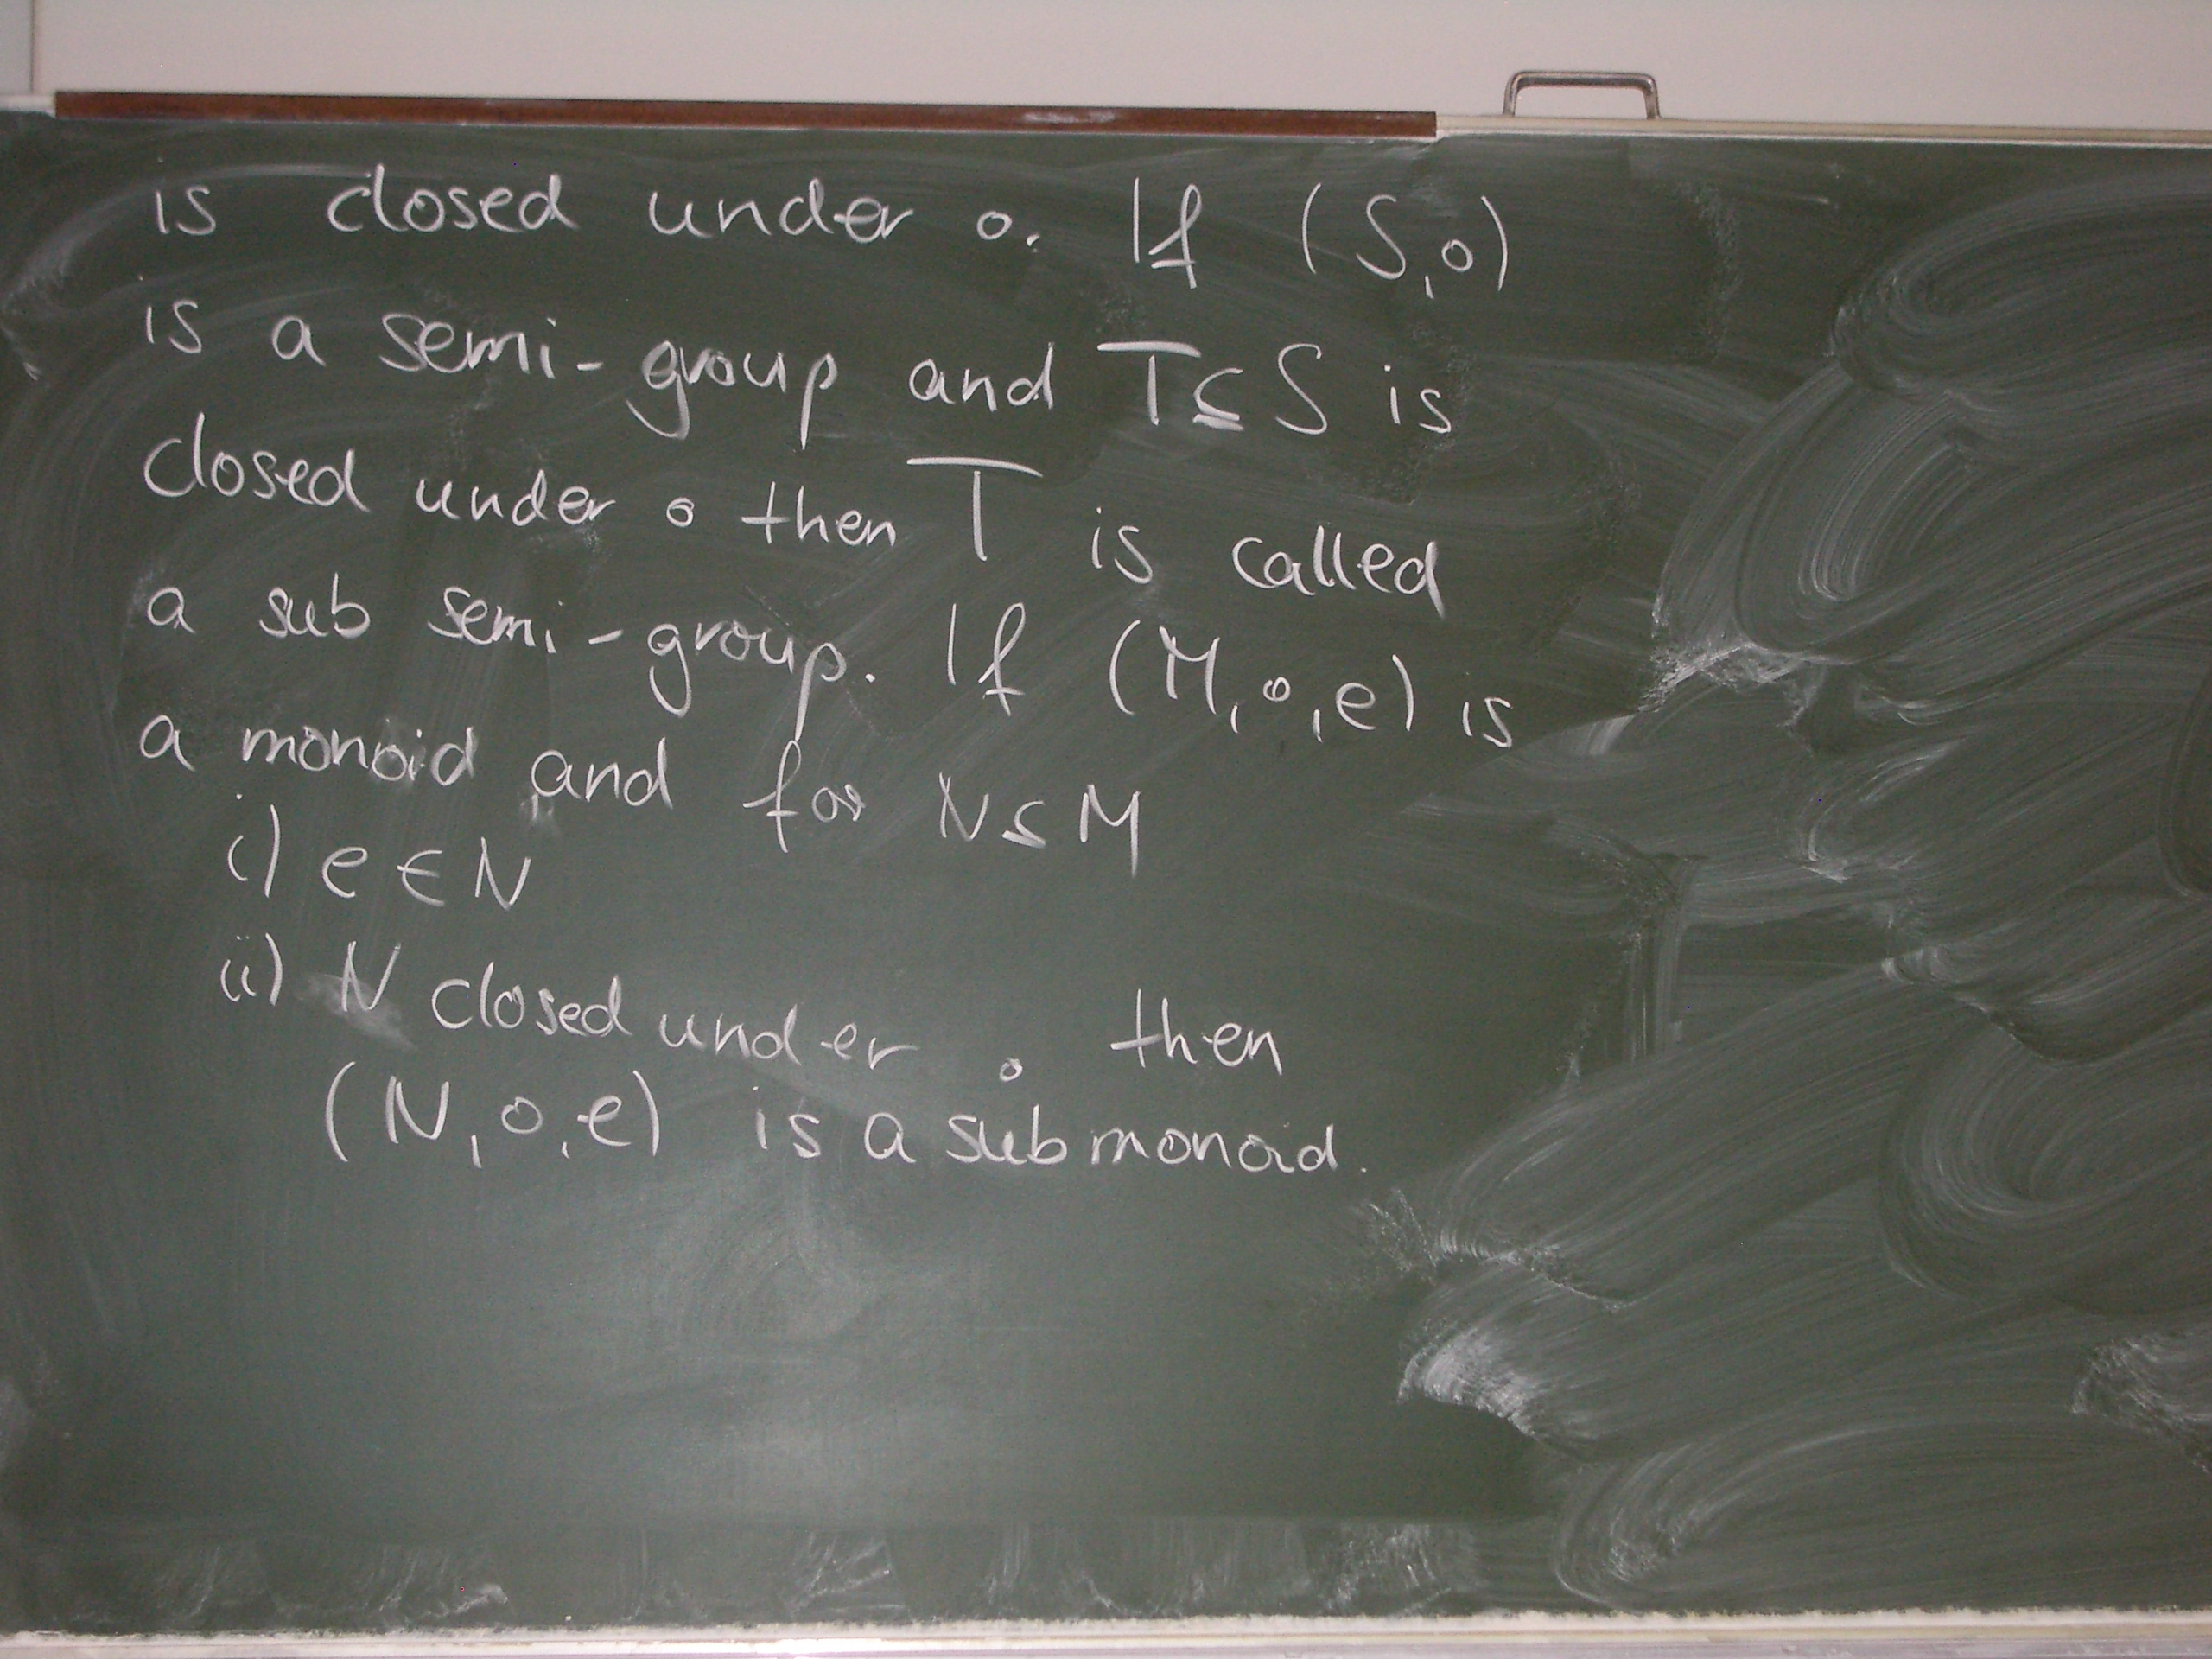 is closed under ∘. If (S,∘)
is a semi-group and T⊆S is
closed under ∘ then T is called
a sub semi-group. If (M,∘,e) is
a monoid and for N⊆M
i) e∈N
ii) N closed under ∘ then
(N,∘,e) is a submonoid.